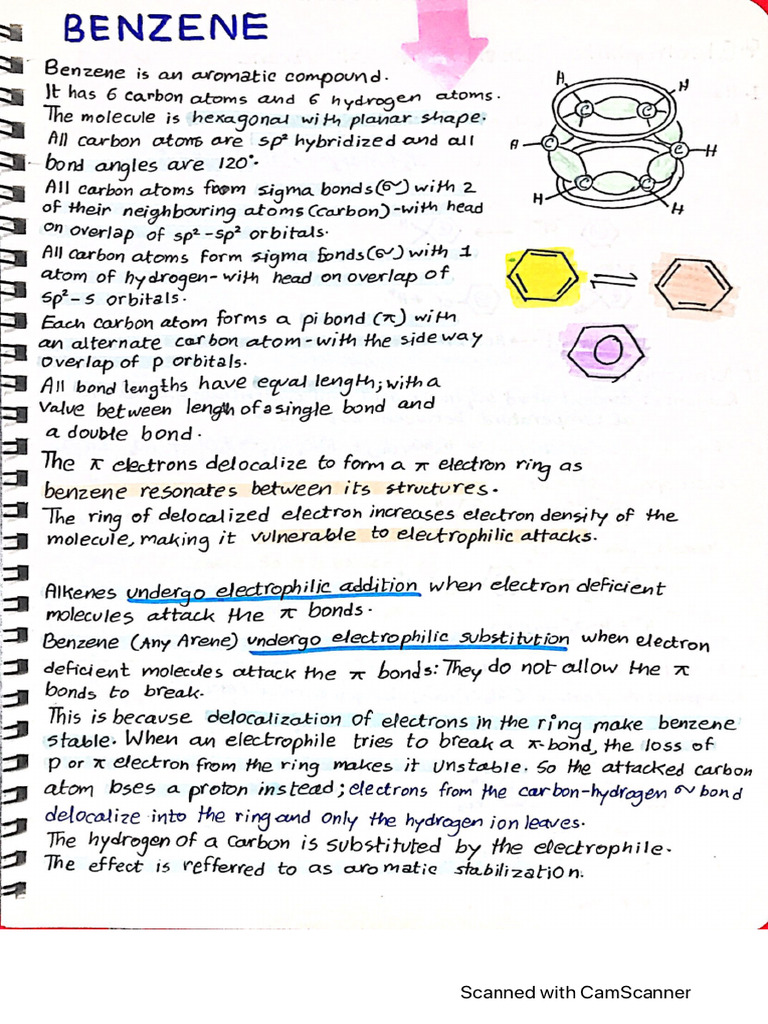 BENZENE
Benzene is an aromatic compound.
It has 6 carbon atoms and 6 hydrogen atoms.
The molecule is hexagonal with planar shape.
All carbon atoms are sp² hybridized and all
bond angles are 120°.
All carbon atoms form sigma bonds(σ) with 2
of their neighbouring atoms (carbon)-with head
on overlap of sp²-sp² orbitals.
All carbon atoms form sigma bonds(σ) with 1
atom of hydrogen-with head on overlap of
sp²-s orbitals.
Each carbon atom forms a pi bond (π) with
an alternate carbon atom-with the side way
overlap of p orbitals.
All bond lengths have equal length; with a
value between length of a single bond and
a double bond.
The π electrons delocalize to form a π electron ring as
benzene resonates between its structures.
The ring of delocalized electron increases electron density of the
molecule, making it vulnerable to electrophilic attacks.
Alkenes undergo electrophilic addition when electron deficient
molecules attack the π bonds.
Benzene (Any Arene) undergo electrophilic substitution when electron
deficient molecules attack the π bonds: They do not allow the π
bonds to break.
This is because delocalization of electrons in the ring make benzene
stable. When an electrophile tries to break a π-bond, the loss of
p or π electron from the ring makes it unstable. So the attacked carbon
atom loses a proton instead; electrons from the carbon-hydrogen σ bond
delocalize into the ring and only the hydrogen ion leaves.
The hydrogen of a carbon is substituted by the electrophile.
The effect is refferred to as aromatic stabilization.
H H
C C
H C C H
C C
H H
Scanned with CamScanner